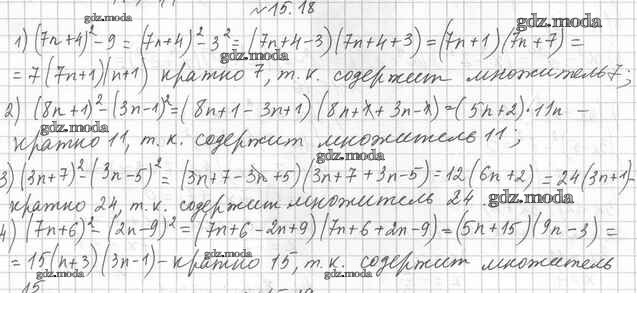 №15.18
gdz.moda
gdz.moda
1) (7n+4)²-9 = (7n+4)²-3² = (7n+4-3)(7n+4+3) = (7n+1)(7n+7) =
gdz.moda
= 7(7n+1)(n+1) кратно 7, т.к. содержит множитель 7;
2) (8n+1)²-(3n-1)² = (8n+1-3n+1)(8n+1+3n-1) = (5n+2)·11n -
gdz.moda
кратно 11, т.к. содержит множитель 11;
gdz.moda
3) (3n+7)²-(3n-5)² = (3n+7-3n+5)(3n+7+3n-5) = 12(6n+2) = 24(3n+1)-
кратно 24, т.к. содержит множитель 24
gdz.moda
4) (7n+6)²-(2n-9)² = (7n+6-2n+9)(7n+6+2n-9) = (5n+15)(9n-3) =
gdz.moda
= 15(n+3)(3n-1) - кратно 15, т.к. содержит множитель
gdz.moda
gdz.moda
15